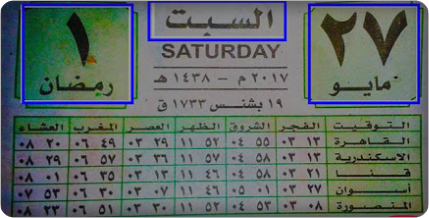 ٢٧ السبت ١
مايو SATURDAY رمضان
٢٠١٧ م - ١٤٣٨ هـ
١٩ بشنس ١٧٣٣ ق
التوقيت الفجر الشروق الظهر العصر المغرب العشاء
القاهرة ١٣ ٠٣ ٥٥ ٠٤ ٥٢ ١١ ٢٩ ٠٣ ٤٩ ٠٦ ٢٠ ٠٨
الاسكندرية ١٣ ٠٣ ٥٨ ٠٤ ٥٨ ١١ ٣٦ ٠٣ ٥٧ ٠٦ ٢٩ ٠٨
قنا ٢١ ٠٣ ٥٨ ٠٤ ٤٦ ١١ ١٣ ٠٣ ٣٥ ٠٦ ٠١ ٠٨
أسوان ٢٧ ٠٣ ٠١ ٠٥ ٤٦ ١١ ٠٧ ٠٣ ٣٠ ٠٦ ٥٣ ٠٧
المنصورة ٠٨ ٠٣ ٥٣ ٠٤ ٥٢ ١١ ٣١ ٠٣ ٥١ ٠٦ ٢٣ ٠٨